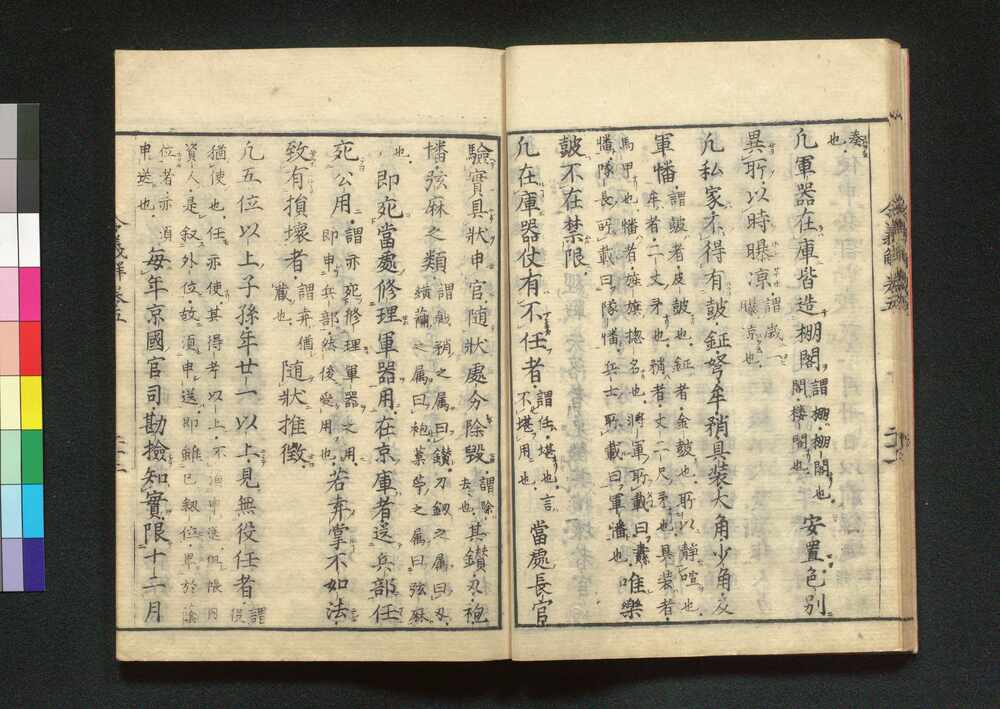 奏
也
凢軍器在庫皆造棚閣謂棚棚閣也閣樓閣也安置色別
異所以時曝凉謂歳一曝凉也
凢私家不得有皷鉦弩牟矟具装大角少角及
軍幡謂皷者皮皷也鉦者金皷也所以静喧也牟者二丈矛也矟者丈二尺矛也具装者
馬甲也幡者旌旗惣名也将軍所載曰纛幡隊長所載曰隊幡兵士所載曰軍幡也唯樂
皷不在禁限
凢在庫器仗有不任者謂任堪也言不堪用也當處長官
驗實具狀申官随狀處分除毀謂除去也其鑚刃袍
幡弦麻之類謂
也即宛當處修理軍器用在京庫者送兵部任
宛公用謂亦宛修理軍器之用即申兵部然後受用也若弃掌不如法
致有損壞者謂弃猶蔵也随狀推徴
凢五位以上子孫年廿一以上見無役任者謂役
猶使也任亦使其得考以上不
資人是叙外位故須申送即雖已叙位畢於蔭
位者亦須
申送也毎年京國官司勘檢知實限十二月
令義解巻五